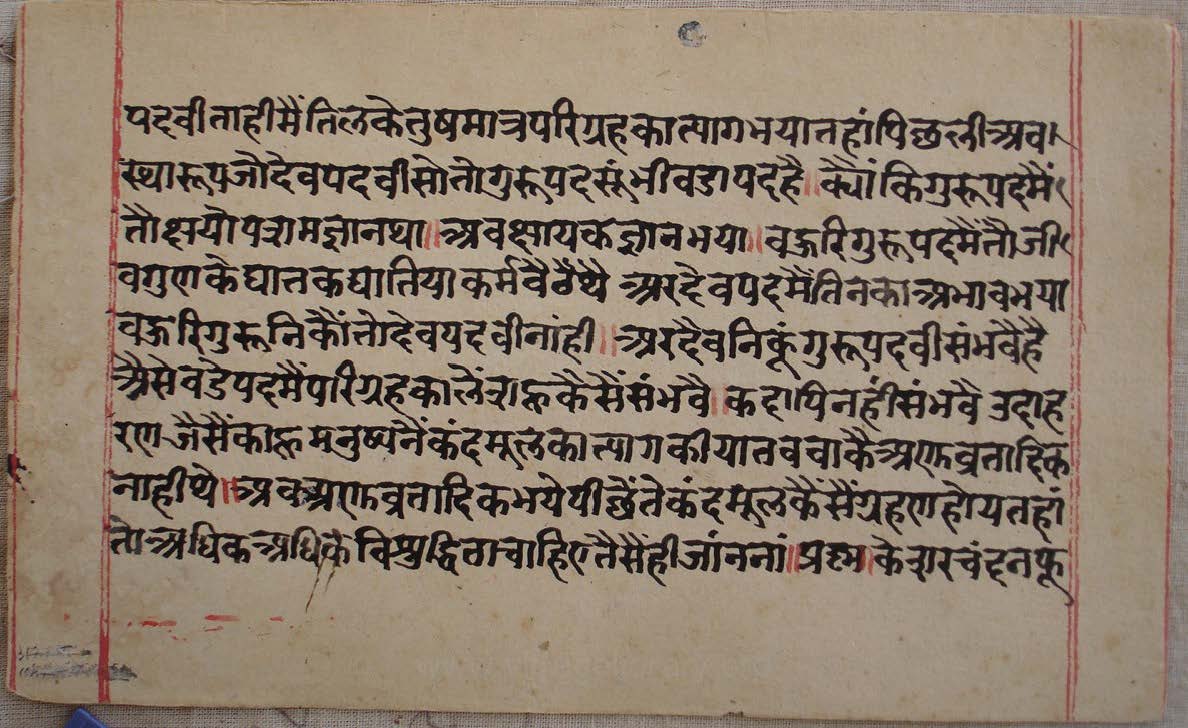 पदवीताहीमैंतिलकेतुषमात्रपरिग्रहकात्यागभयातहांपिछलीअवा
स्थारूपजोदेवपदवीसोतोगुरूपदसूंभीवडापदहै॥क्यौंकिगुरूपदमैं
तौक्षयोपशमज्ञानथा॥अवक्षायकज्ञानभया॥वहुरिगुरूपदमैंतौजी
वगुणकेघातकघातियाकर्मवैठैथे अरदेवपदमैंतिनकाअभावभया
वहुरिगुरूनिकौंतोदेवपदवीनांही॥अरदेवनिकूंगुरूपदवीसंभवैहै
अैसेवडेपदमैंपरिग्रहकालेंशहूकैसैंसंभवै॥कदापिनहींसंभवै उदाह
रणजैसैंकाहूमनुष्यनैंकंदमूलकात्यागकीयातवचाकैअणुव्रतादिक
नाहीथे॥अवअणुव्रतादिकभयेपीछैंतेकंदमूलकैंसैंग्रहणहोयतहां
तोअधिकअधिकेविशुद्धिताचाहिएतैसैंहीजांननां॥प्रश्न॥केशरचंदनफू